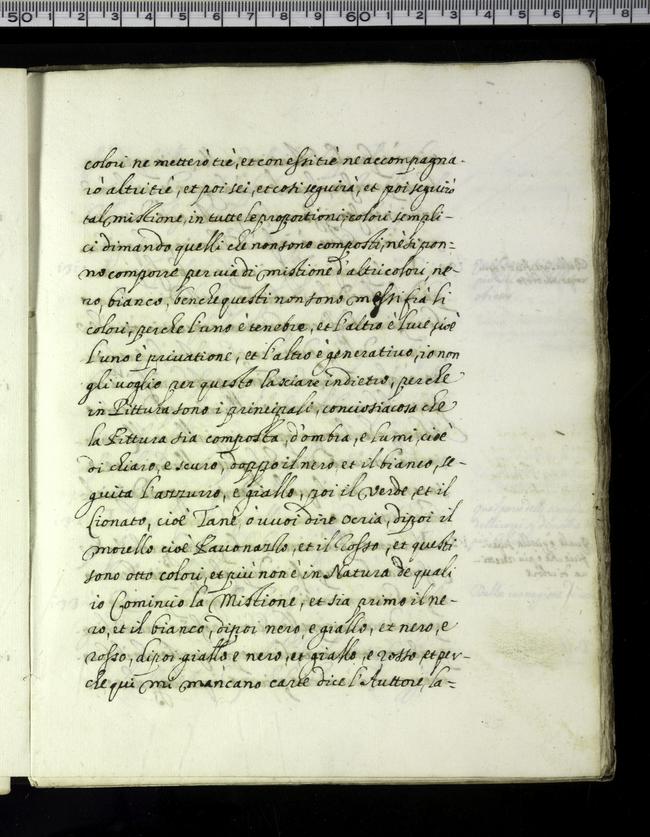 colori ne metterò tré, et con essi tré ne accompagna-
rò altri tré, et poi sei, et così seguirà, et poi seguirò
tal mistione, in tutte le proportioni; colori sempli-
ci dimando quelli che non sono composti, né si pon=
no comporre per via di mistione d'altri colori, ne-
ro, bianco, benche questi non sono messi frà li
colori, perche l'uno è tenebre, et l'altro è luce, cioè
l'uno è privatione, et l'altro è generativo, io non
gli voglio per questo lasciare indietro, perche
in Pittura sono i principali, conciosiacosa che
la Pittura sia composta, d'ombra, e lumi, cioè
di chiaro, e scuro, doppo il nero et il bianco, se-
guita l'azzurro, e giallo, poi il verde, et il
Lionato, cioè Tanè, ò vuoi dire ocria, dipoi il
morello cioè Pavonazzo, et il Rosso, et questi
sono otto colori, et più non è in Natura de quali
io Comincio la Mistione, et sia primo il ne-
ro, et il bianco, dipoi nero, e giallo, et nero, e
rosso, dipoi giallo e nero, et giallo, e rosso, et per-
che qui mi mancano carte dice l'Auttore, la=